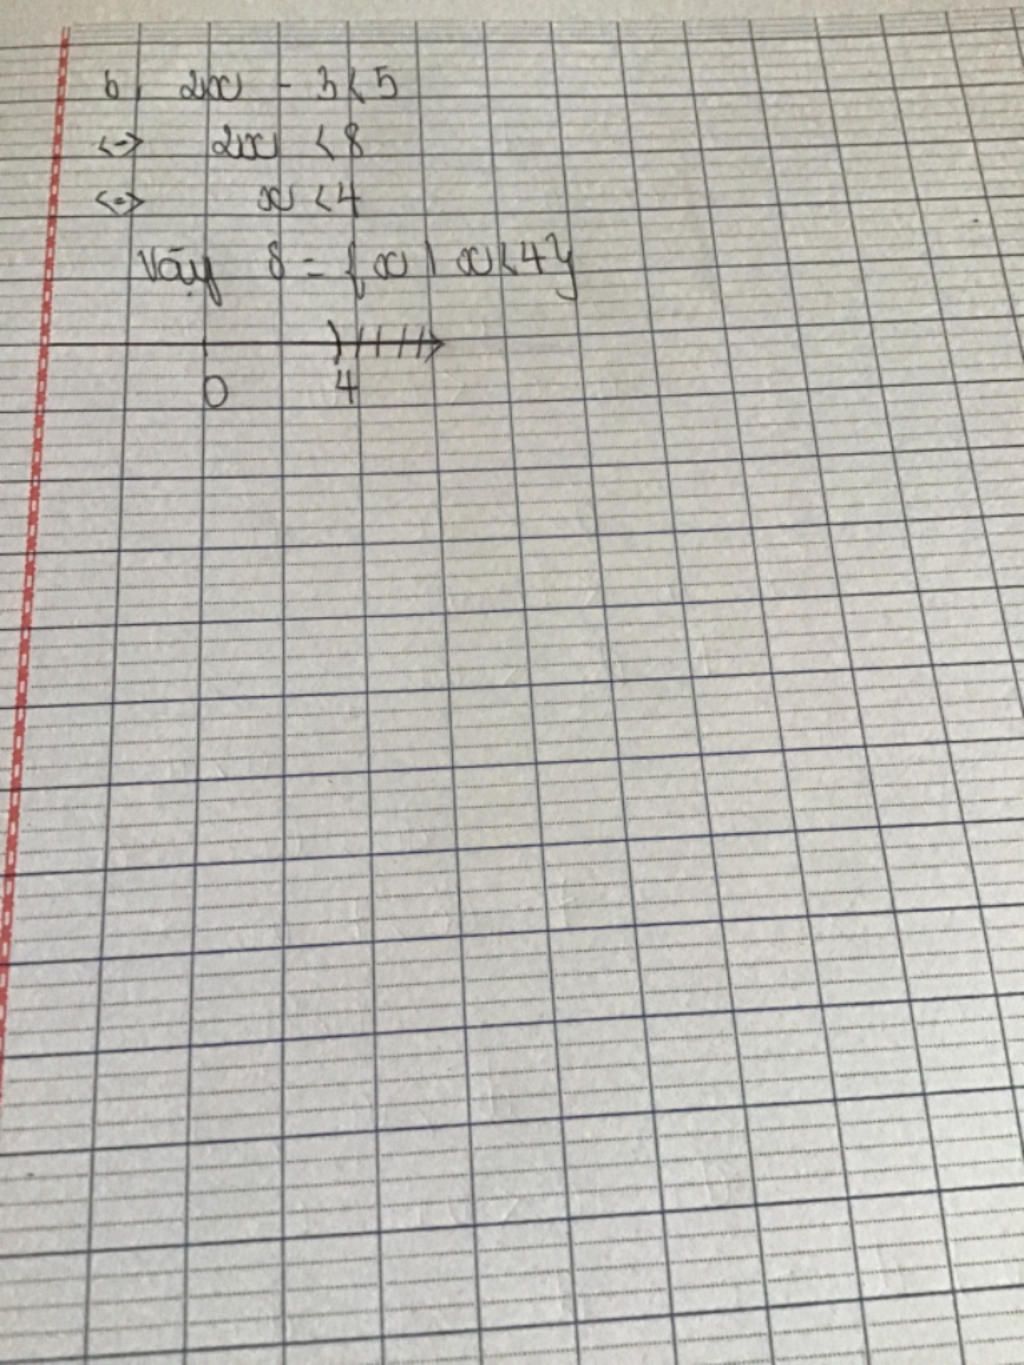 b, 2x - 3 < 5
<=> 2x < 8
<=> x < 4
Vậy S = { x | x < 4 }
0 4